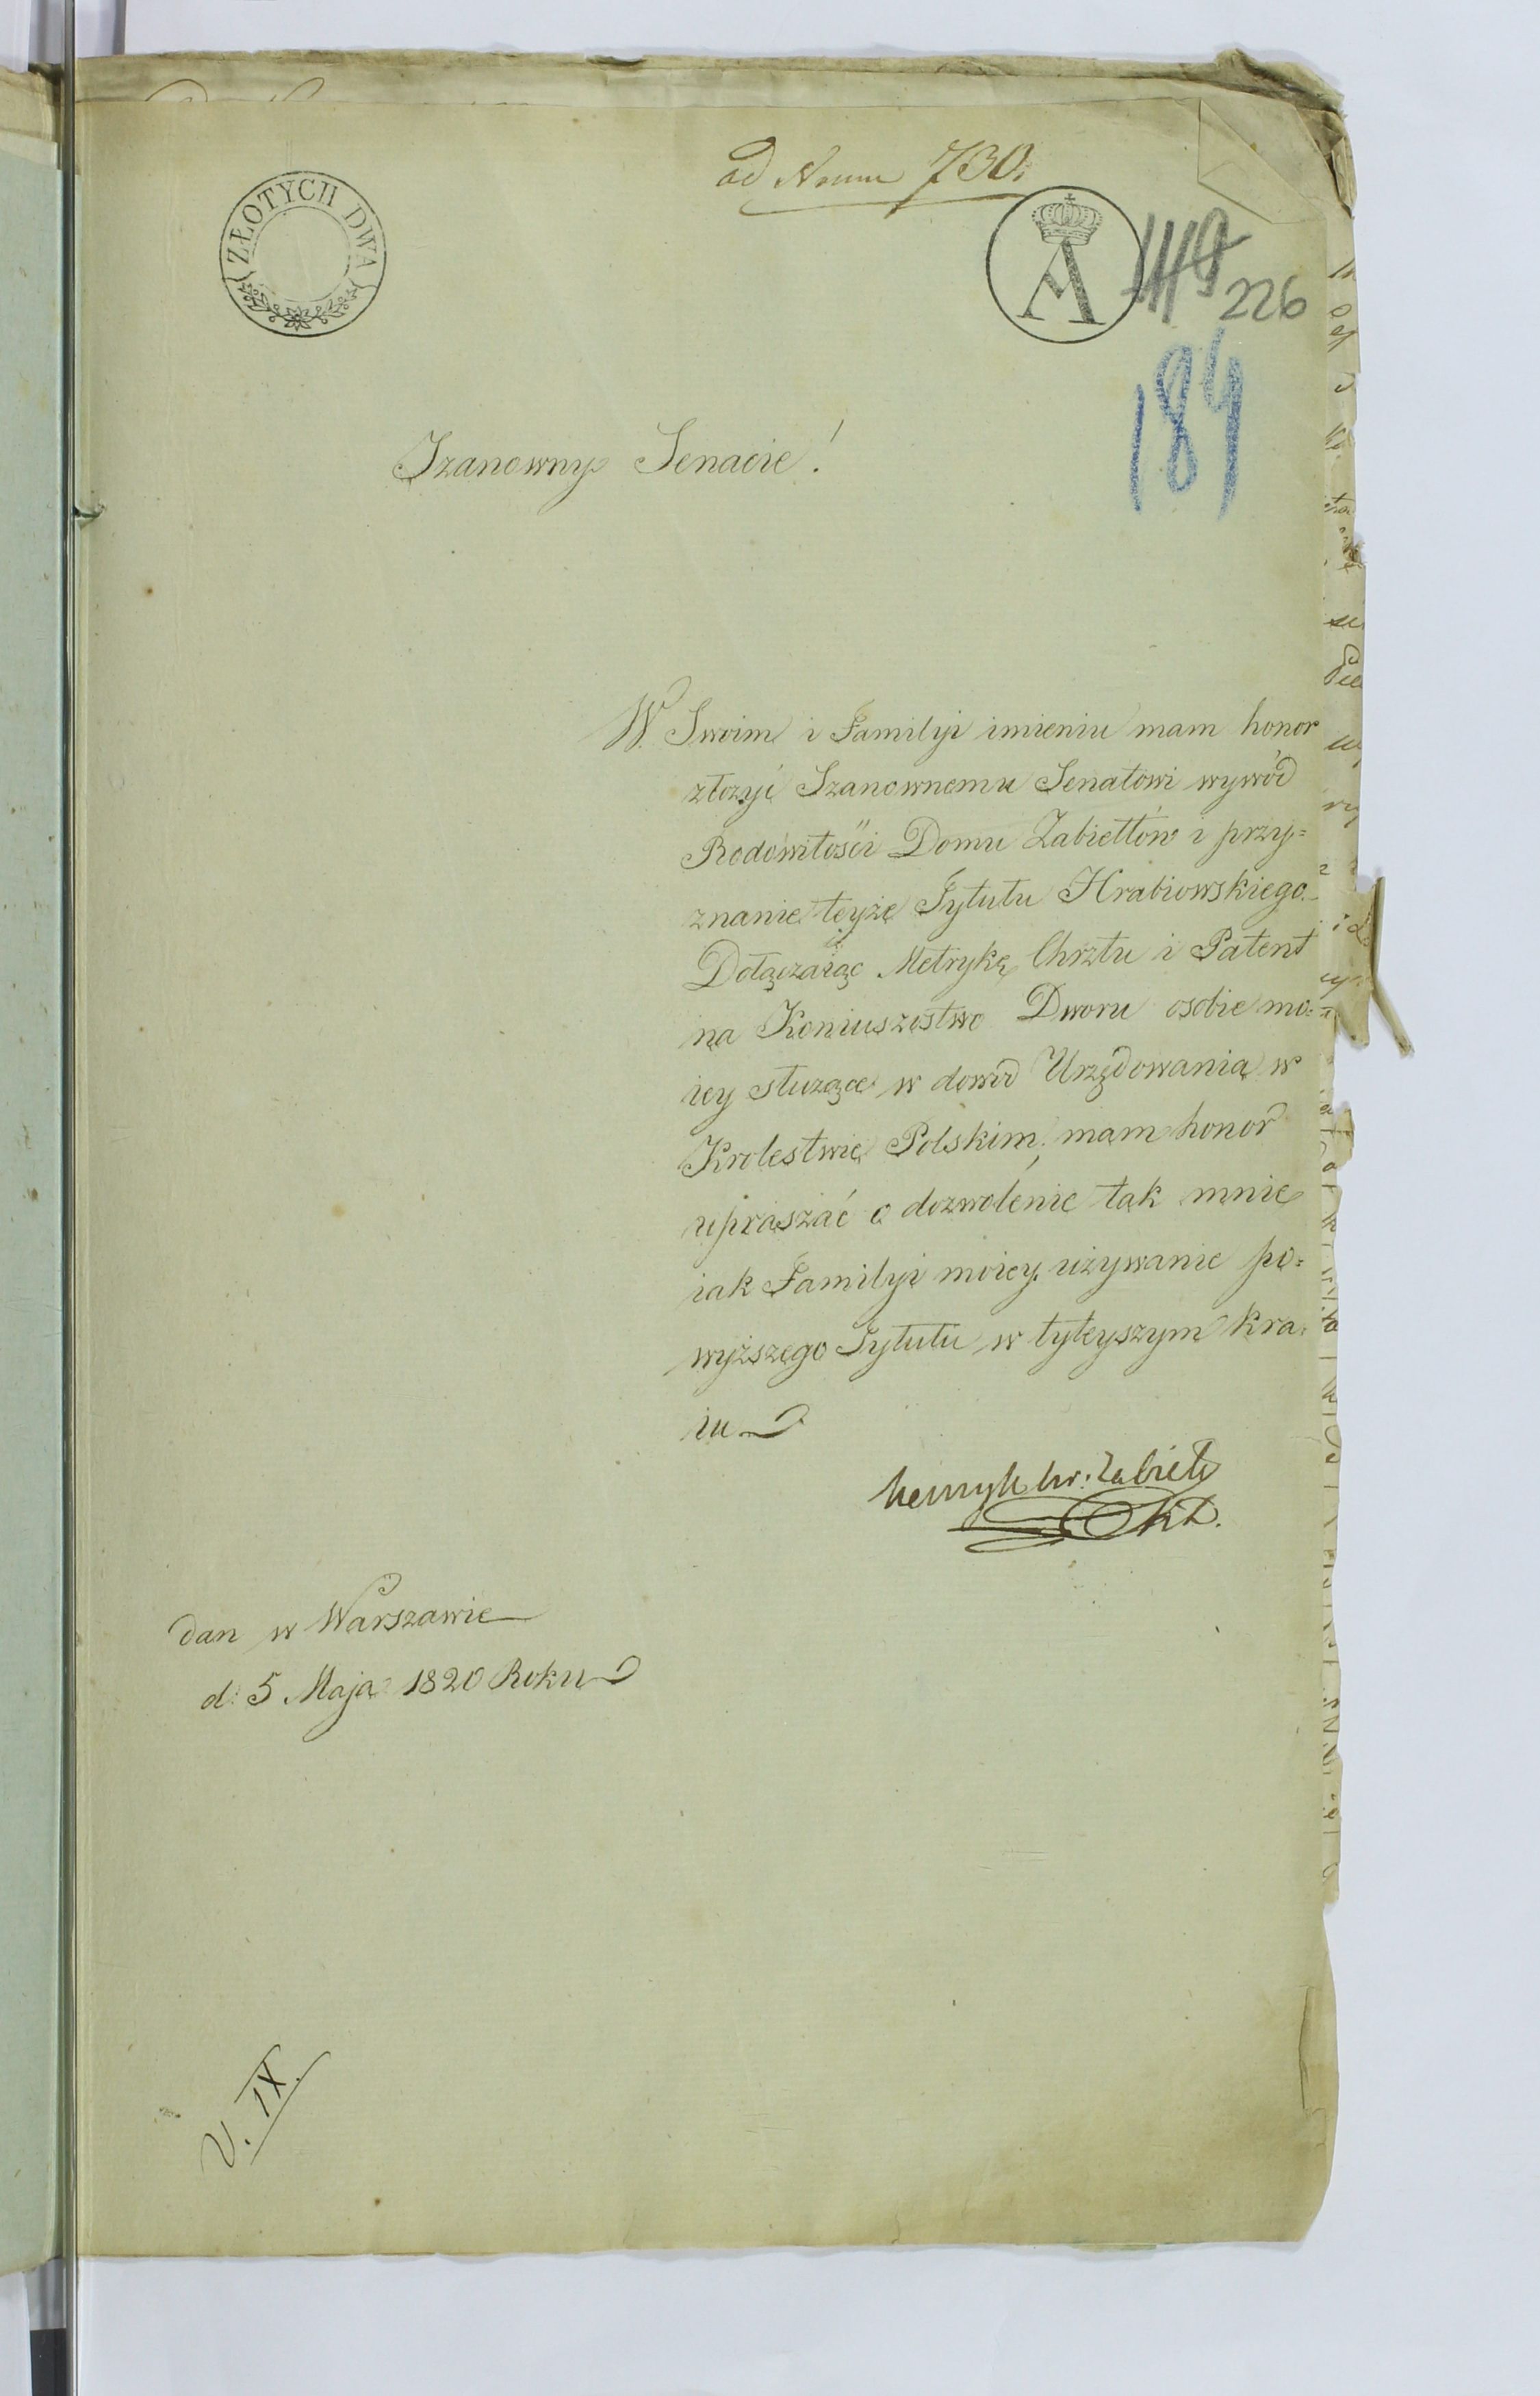 ad Numm 730.
ZŁOTYCH DWA
A
226
184
Szanowny Senacie!
W Swoim i Familyi imieniu mam honor
złożyć Szanownemu Senatowi wywód
Rodowitości Domu Zabiełłów i przy=
znanie teyże Tytułu Hrabiowskiego.
Dołączaiąc Metrykę Chrztu i Patent
na Koniuszostwo Dworu osobie mo=
iey służące w dowód Urzędowania w
Krolestwie Polskim, mam honor
upraszać o dozwolenie tak mnie
iak Familyi moiey używanie po=
wyższego Tytułu w tyteyszym kra=
iu
Henryk hr: Zabiełło
dan w Warszawie
d: 5 Maja 1820 Roku
V. IX.